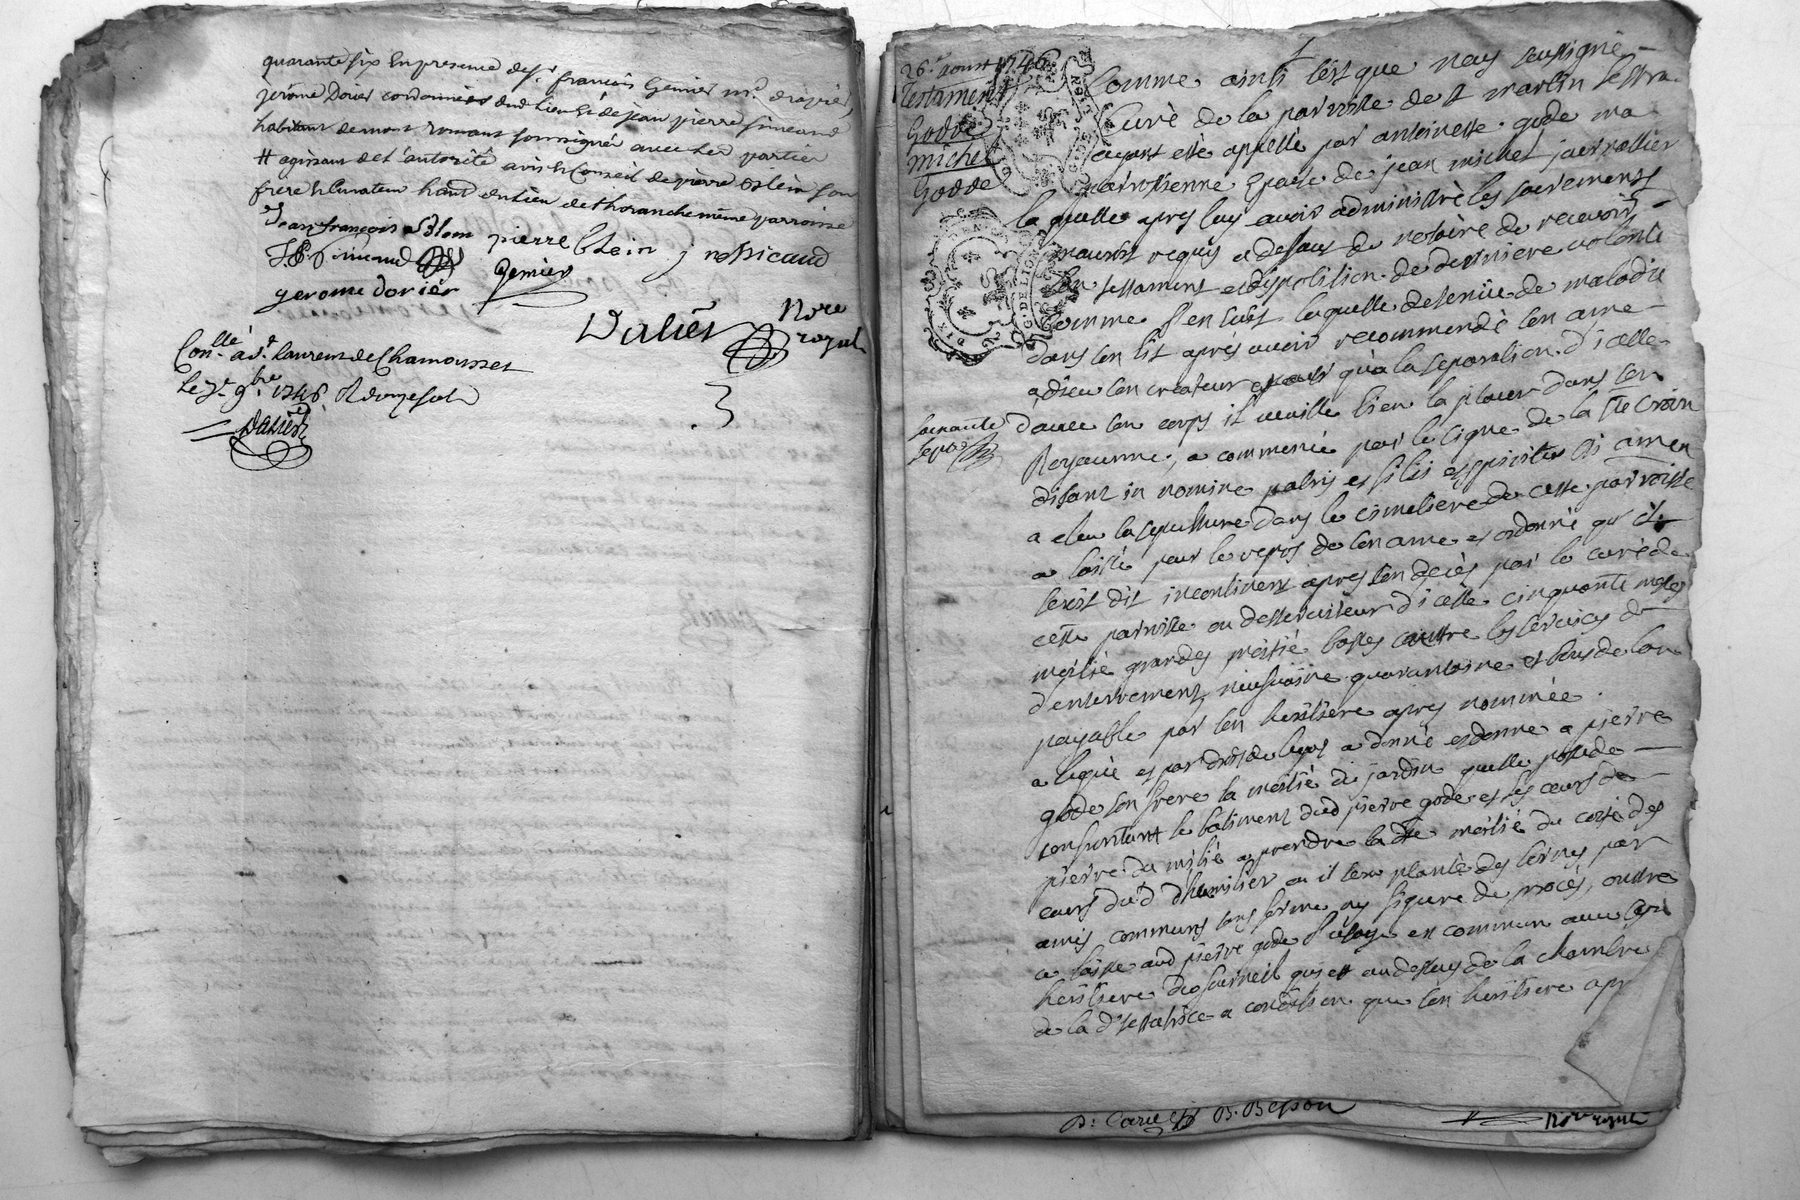 quarante six en presence de sr francois Genier md drapier,
jerome Dorier cordonnier dud lieu et de jean pierre simeand
habitant de mont romant soussignés avec les parties
# agissant de l'autorité avis et Conseil de pierre blein son
frere et Curateur habitant en lieu de thoranche même parroisse
Jean francois Blein pierre blein j nossicaud
JP Simeand Genier
gerome dorier
Daliés Nore
royal
Con.llé à St. laurent de Chamousset
le 3e 9bre 1746 R douze sols
Daliés
26e aoust 1746
Testament
Godde
michel
Godde
G. DE LION
soixante
sept
Comme ainsi soit que nous soussigné
Curé de la parroisse de st martin lestra
ayant esté appellé par antoinette gode ma
parroissienne Epouse de jean michel journallier
la quelle apres luy avoir administré les sacrements
m'auroit requis a defaut de notaire de recevoir
son testament et disposition de derniere volonté
comme s'en suit laquelle detenüe de maladie
dans son lit apres avoir recommendé son ame
a dieu son createur et qu'a la separation d'icelle
d'avec son corps il veuille bien la placer dans son
Royaume, a commencé par le signe de la ste croix
disant in nomine patris et filii et spiritus sti amen
a eleu sa sepulture dans le cimetiere de cette parroisse
a laissé pour le repos de son ame et ordonné qu'il
seroit dit incontinent apres son decès par le curé de
cette parroisse ou desserviteur d'icelle cinquante messes
moitié grandes moitié basses outtre les services de
d'enterrement, neufvaine quarantaine et bout de l'an
payable par son heritiere apres nommée.
a legué et par droit de legat a donné et donne a pierre
gode son frere la moitié du jardin quelle possede
consurtant le bâtiment dud pierre gode et les cours de
pierre du milié a prendre la dte moitié du coté des
cours dud dhumilier ou il sera planté des bornes par
amis communs sans forme ny figure de procès, outtre
a laissé aud pierre gode l'usage en commun avec son
heritiere du fourneil qui est au dessus de la chambre
de la dte testatrice a condition que son heritiere apr
B: Caru B. Besson
Nore royal